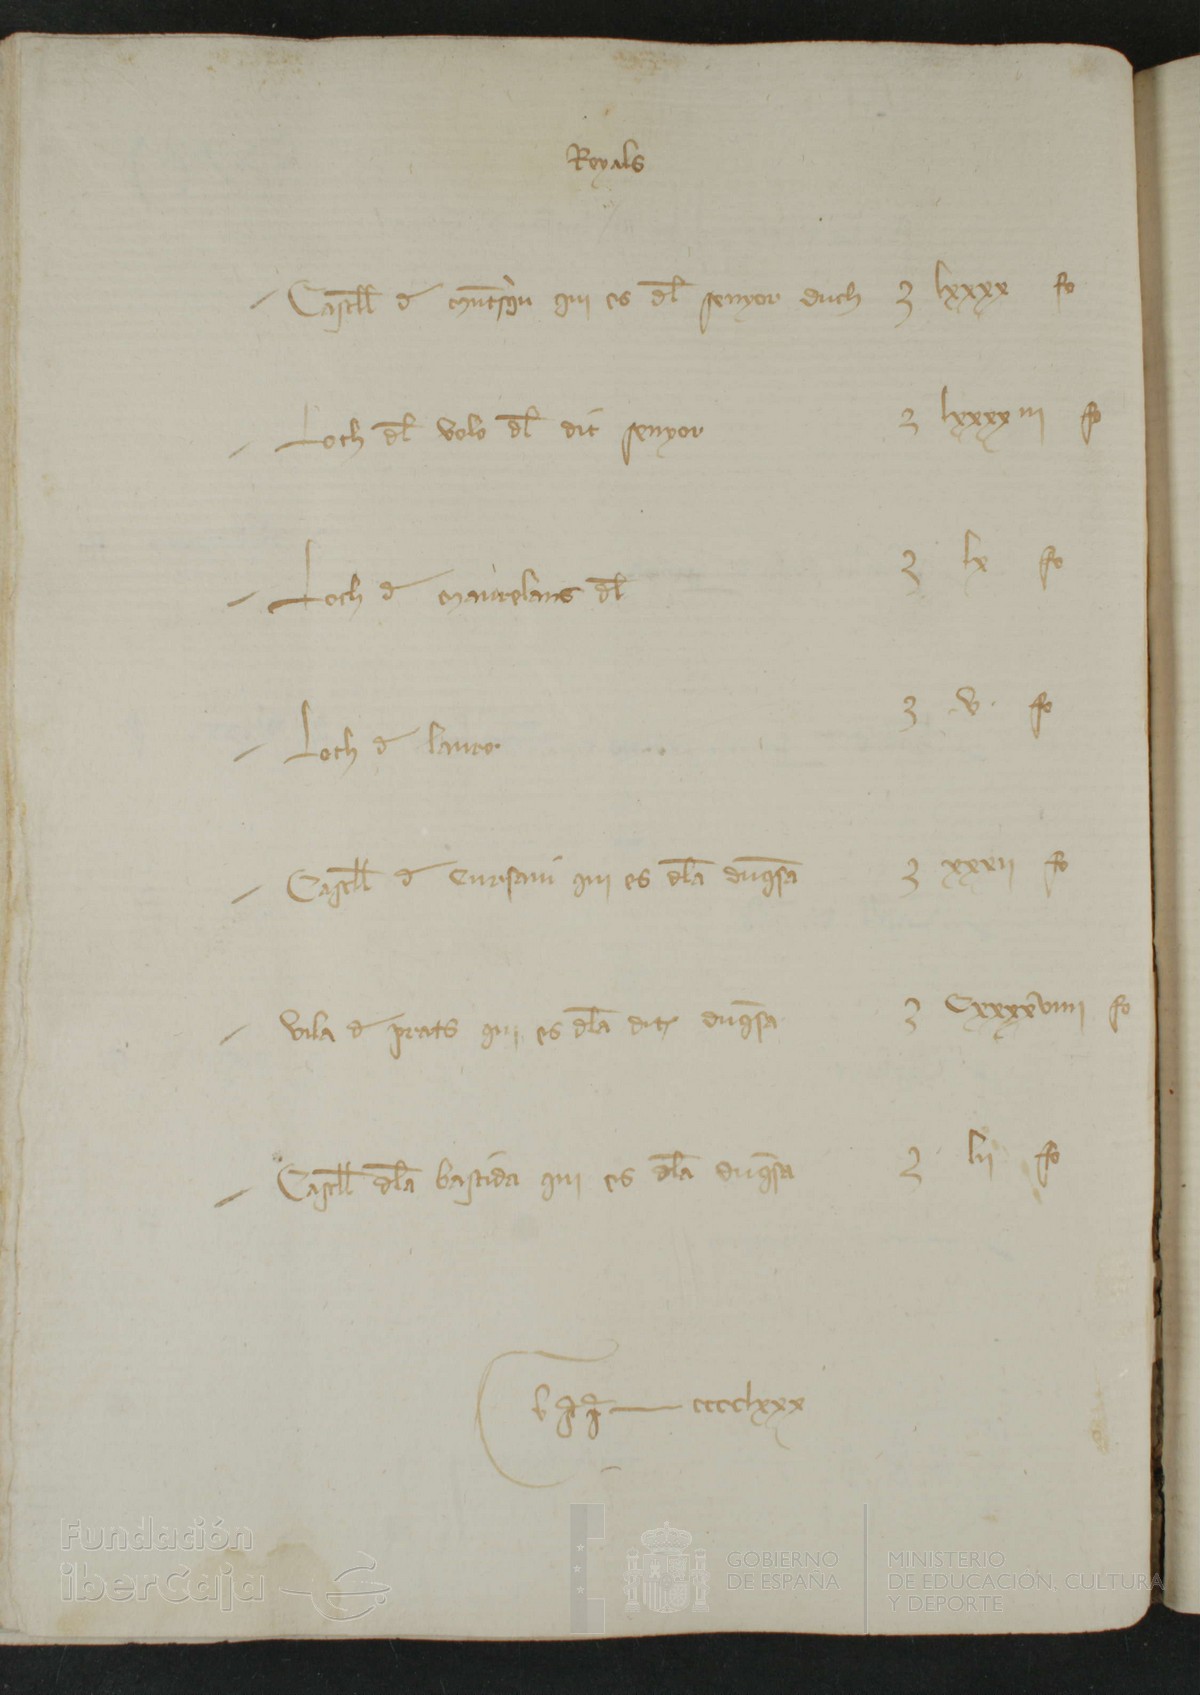 Reyals
Castell d muntsqu qui es dl senyor duch 3 lxxxx fo
Loch dl volo dl dit senyor 3 lxxxxiii fo
Loch d maurelans dl 3 lx fo
Loch d lauro 3 v fo
Castell d Cursaui qui es dla duqsa 3 xxxii fo
Vila d prats qui es dla dit duqsa 3 Cxxxxviiii fo
Castell dla bastida qui es dla duqsa 3 lii fo
cccclxxx
Fundación
iberCaja
GOBIERNO
DE ESPAÑA
MINISTERIO
DE EDUCACIÓN, CULTURA
Y DEPORTE